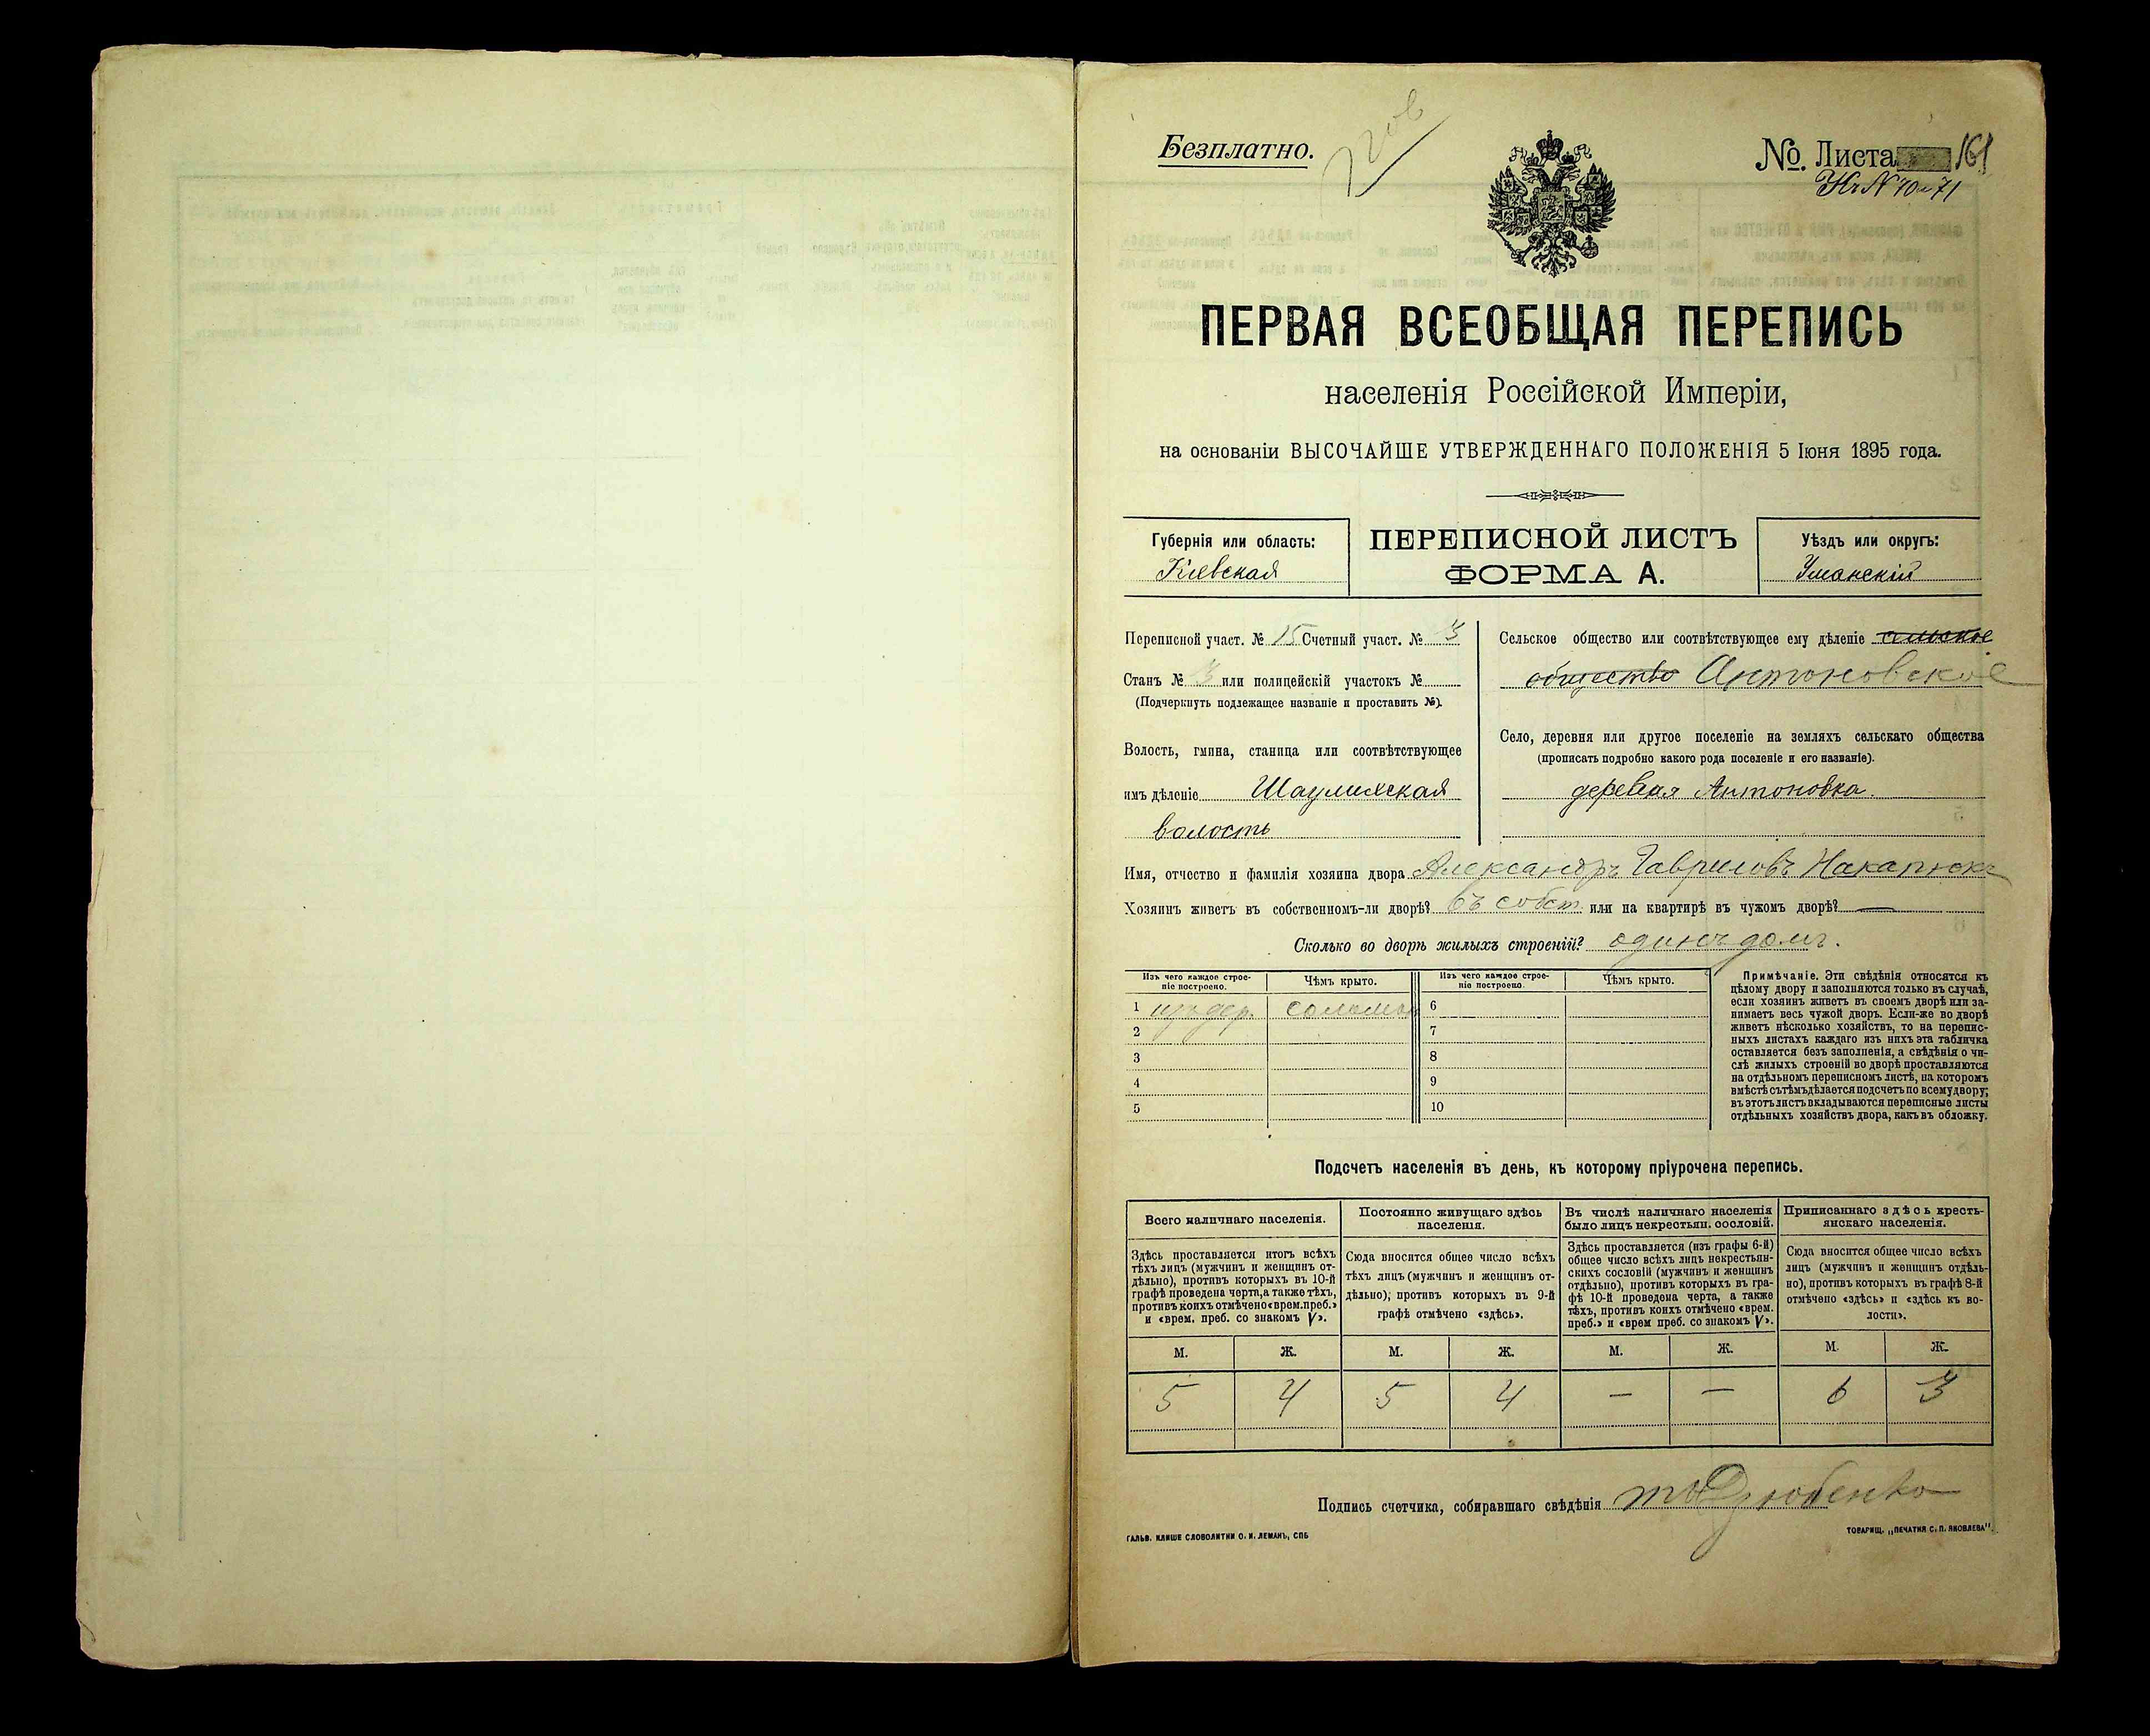 Безплатно.
№ Листа 161
ПЕРВАЯ ВСЕОБЩАЯ ПЕРЕПИСЬ
населенія Россійской Имперіи,
на основаніи ВЫСОЧАЙШЕ УТВЕРЖДЕННАГО ПОЛОЖЕНІЯ 5 Іюня 1895 года.
Губернія или область:
Кіевская
ПЕРЕПИСНОЙ ЛИСТЪ
ФОРМА А.
Уѣздъ или округъ:
Уманскій
Переписной участ. № 15 Счетный участ. № 3
Станъ № 3 или полицейскій участокъ №
(Подчеркнуть подлежащее названіе и проставить №).
Волость, гмина, станица или соотвѣтствующее
имъ дѣленіе Шаулихская
волость
Сельское общество или соотвѣтствующее ему дѣленіе сельское
общество Антоновское
Село, деревня или другое поселеніе на земляхъ сельскаго общества
(прописать подробно какого рода поселеніе и его названіе).
деревня Антоновка.
Имя, отчество и фамилія хозяина двора Александръ Гавриловъ
Хозяинъ живетъ въ собственномъ-ли дворѣ? въ собст. или на квартирѣ въ чужомъ дворѣ? —
Сколько во дворѣ жилыхъ строеній? одинъ домъ.
Изъ чего каждое строе-
ніе построено.
Чѣмъ крыто.
Изъ чего каждое строе-
ніе построено.
Чѣмъ крыто.
1 изъ дер. соломой 6
2 7
3 8
4 9
5 10
Примѣчаніе. Эти свѣдѣнія относятся къ
цѣлому двору и заполняются только въ случаѣ,
если хозяинъ живетъ въ своемъ дворѣ или за-
нимаетъ весь чужой дворъ. Если-же во дворѣ
живетъ нѣсколько хозяйствъ, то на перепис-
ныхъ листахъ каждаго изъ нихъ эта табличка
оставляется безъ заполненія, а свѣдѣнія о чи-
слѣ жилыхъ строеній во дворѣ проставляются
на отдѣльномъ переписномъ листѣ, на которомъ
вмѣстѣ съ тѣмъ дѣлается подсчетъ по всему двору;
въ этотъ листъ вкладываются переписные листы
отдѣльныхъ хозяйствъ двора, какъ въ обложку.
Подсчетъ населенія въ день, къ которому пріурочена перепись.
Всего наличнаго населенія.
Здѣсь проставляется итогъ всѣхъ
тѣхъ лицъ (мужчинъ и женщинъ от-
дѣльно), противъ которыхъ въ 10-й
графѣ проведена черта, а также тѣхъ,
противъ коихъ отмѣчено «врем. преб.»
и «врем. преб. со знакомъ V».
Постоянно живущаго здѣсь
населенія.
Сюда вносится общее число всѣхъ
тѣхъ лицъ (мужчинъ и женщинъ от-
дѣльно), противъ которыхъ въ 9-й
графѣ отмѣчено «здѣсь».
Въ числѣ наличнаго населенія
было лицъ некрестьян. сословій.
Здѣсь проставляется (изъ графы 6-й)
общее число всѣхъ лицъ некрестьян-
скихъ сословій (мужчинъ и женщинъ
отдѣльно), противъ которыхъ въ гра-
фѣ 10-й проведена черта, а также
тѣхъ, противъ коихъ отмѣчено «врем.
преб.» и «врем преб. со знакомъ V».
Приписаннаго здѣсь кресть-
янскаго населенія.
Сюда вносится общее число всѣхъ
лицъ (мужчинъ и женщинъ отдѣль-
но), противъ которыхъ въ графѣ 8-й
отмѣчено «здѣсь» и «здѣсь къ во-
лости».
М. Ж. М. Ж. М. Ж. М. Ж.
5 4 5 4 — — 6 3
Подпись счетчика, собиравшаго свѣдѣнія Дзюбенко
ГАЛЬВ. КЛИШЕ СЛОВОЛИТНИ О. И. ЛЕМАНЪ, СПБ
ТОВАРИЩ. „ПЕЧАТНЯ С. П. ЯКОВЛЕВА".